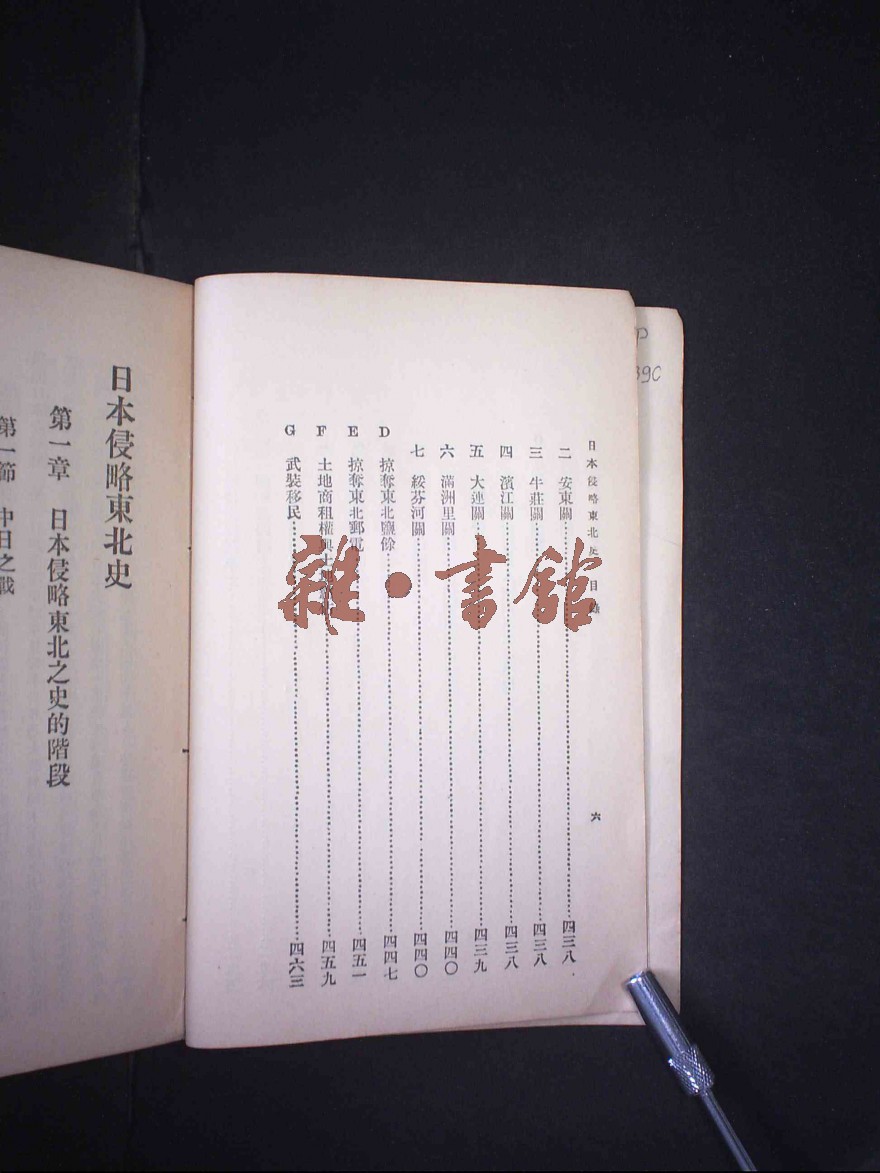 日本侵略東北史 目錄
六
二 安東關 四三八
三 牛莊關 四三八
四 濱江關 四三八
五 大連關 四三九
六 滿洲里關 四四〇
七 綏芬河關 四四〇
D 掠奪東北鹽餘 四四七
E 掠奪東北郵電 四五一
F 土地商租權與土地 四五九
G 武裝移民 四六三
日本侵略東北史
第一章 日本侵略東北之史的階段
第一節 中日之戰
雜·書館
39C